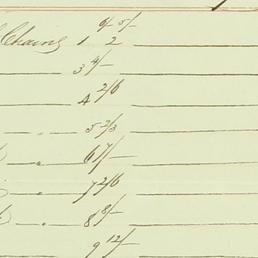 9/- 5/-
Chains 1 2
3 4/-
4 2/6
5 2/3
" 6 7/-
" 7 2/6
" 8 8/-
9 12/-